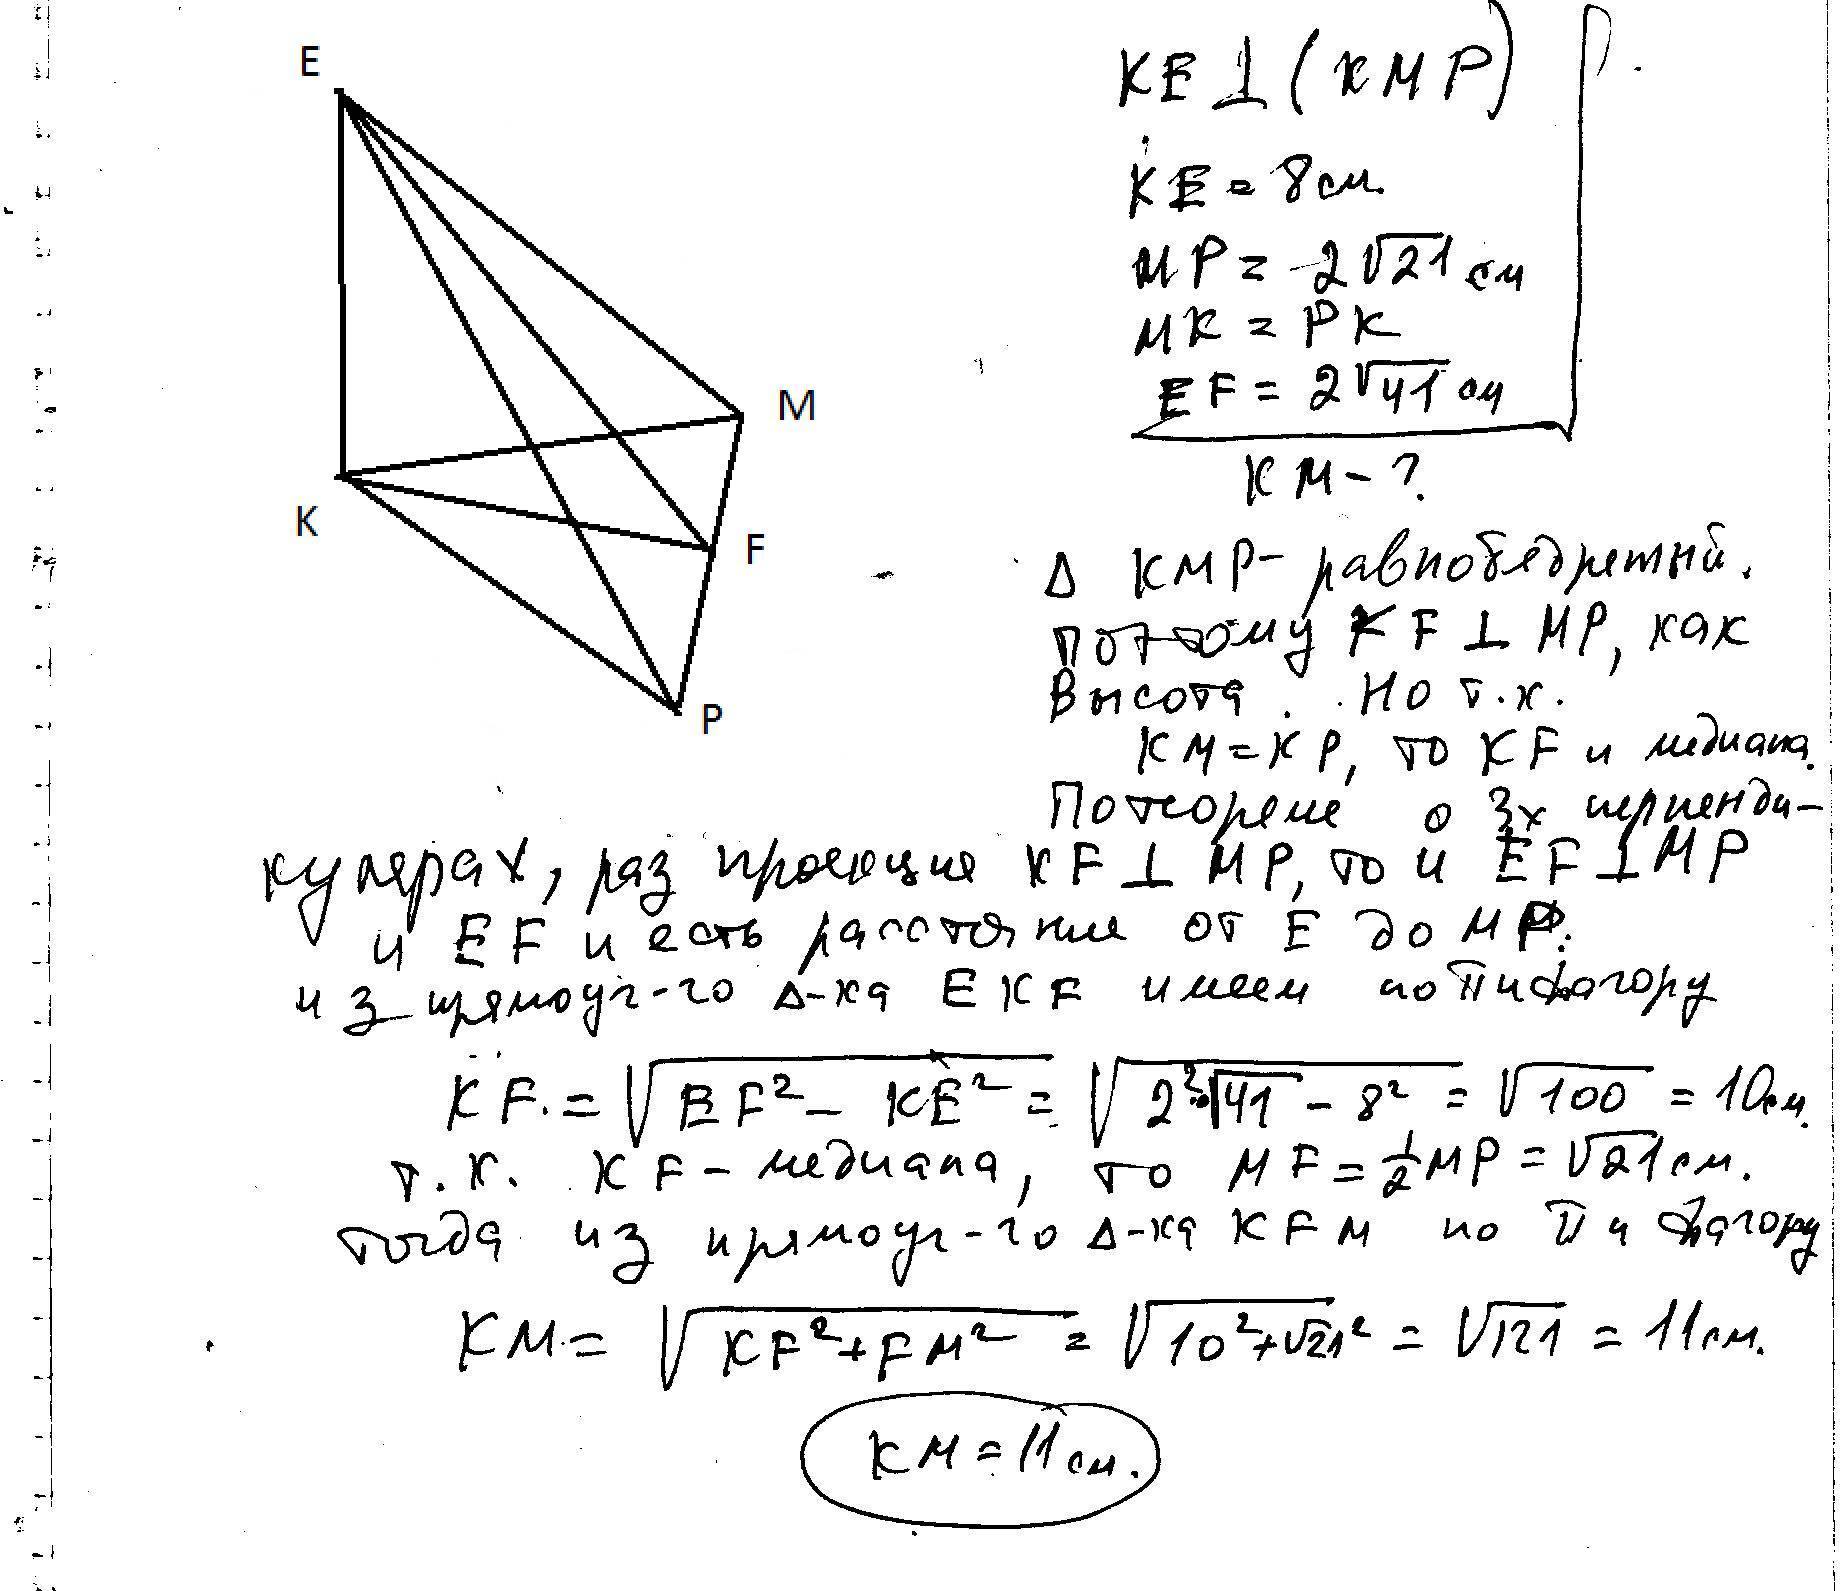 E
M
K
F
P
KE ⊥ (KMP)
KE = 8 см.
MP = 2√21 см
MK = PK
EF = 2√41 см
KM - ?
Δ KMP - равнобедренный.
Потому KF ⊥ MP, как
высота. Но т.к.
KM = KP, то KF и медиана.
По теореме о 3х перпенди-
кулярах, раз проекция KF ⊥ MP, то и EF ⊥ MP
и EF и есть расстояние от E до MP.
из прямоуг-го Δ-ка EKF имеем по Пифагору
KF = √(EF² - KE²) = √(2²·√41 - 8²) = √100 = 10 см.
т.к. KF - медиана, то MF = ½ MP = √21 см.
тогда из прямоуг-го Δ-ка KFM по Пифагору
KM = √(KF² + FM²) = √(10² + √21²) = √121 = 11 см.
KM = 11 см.